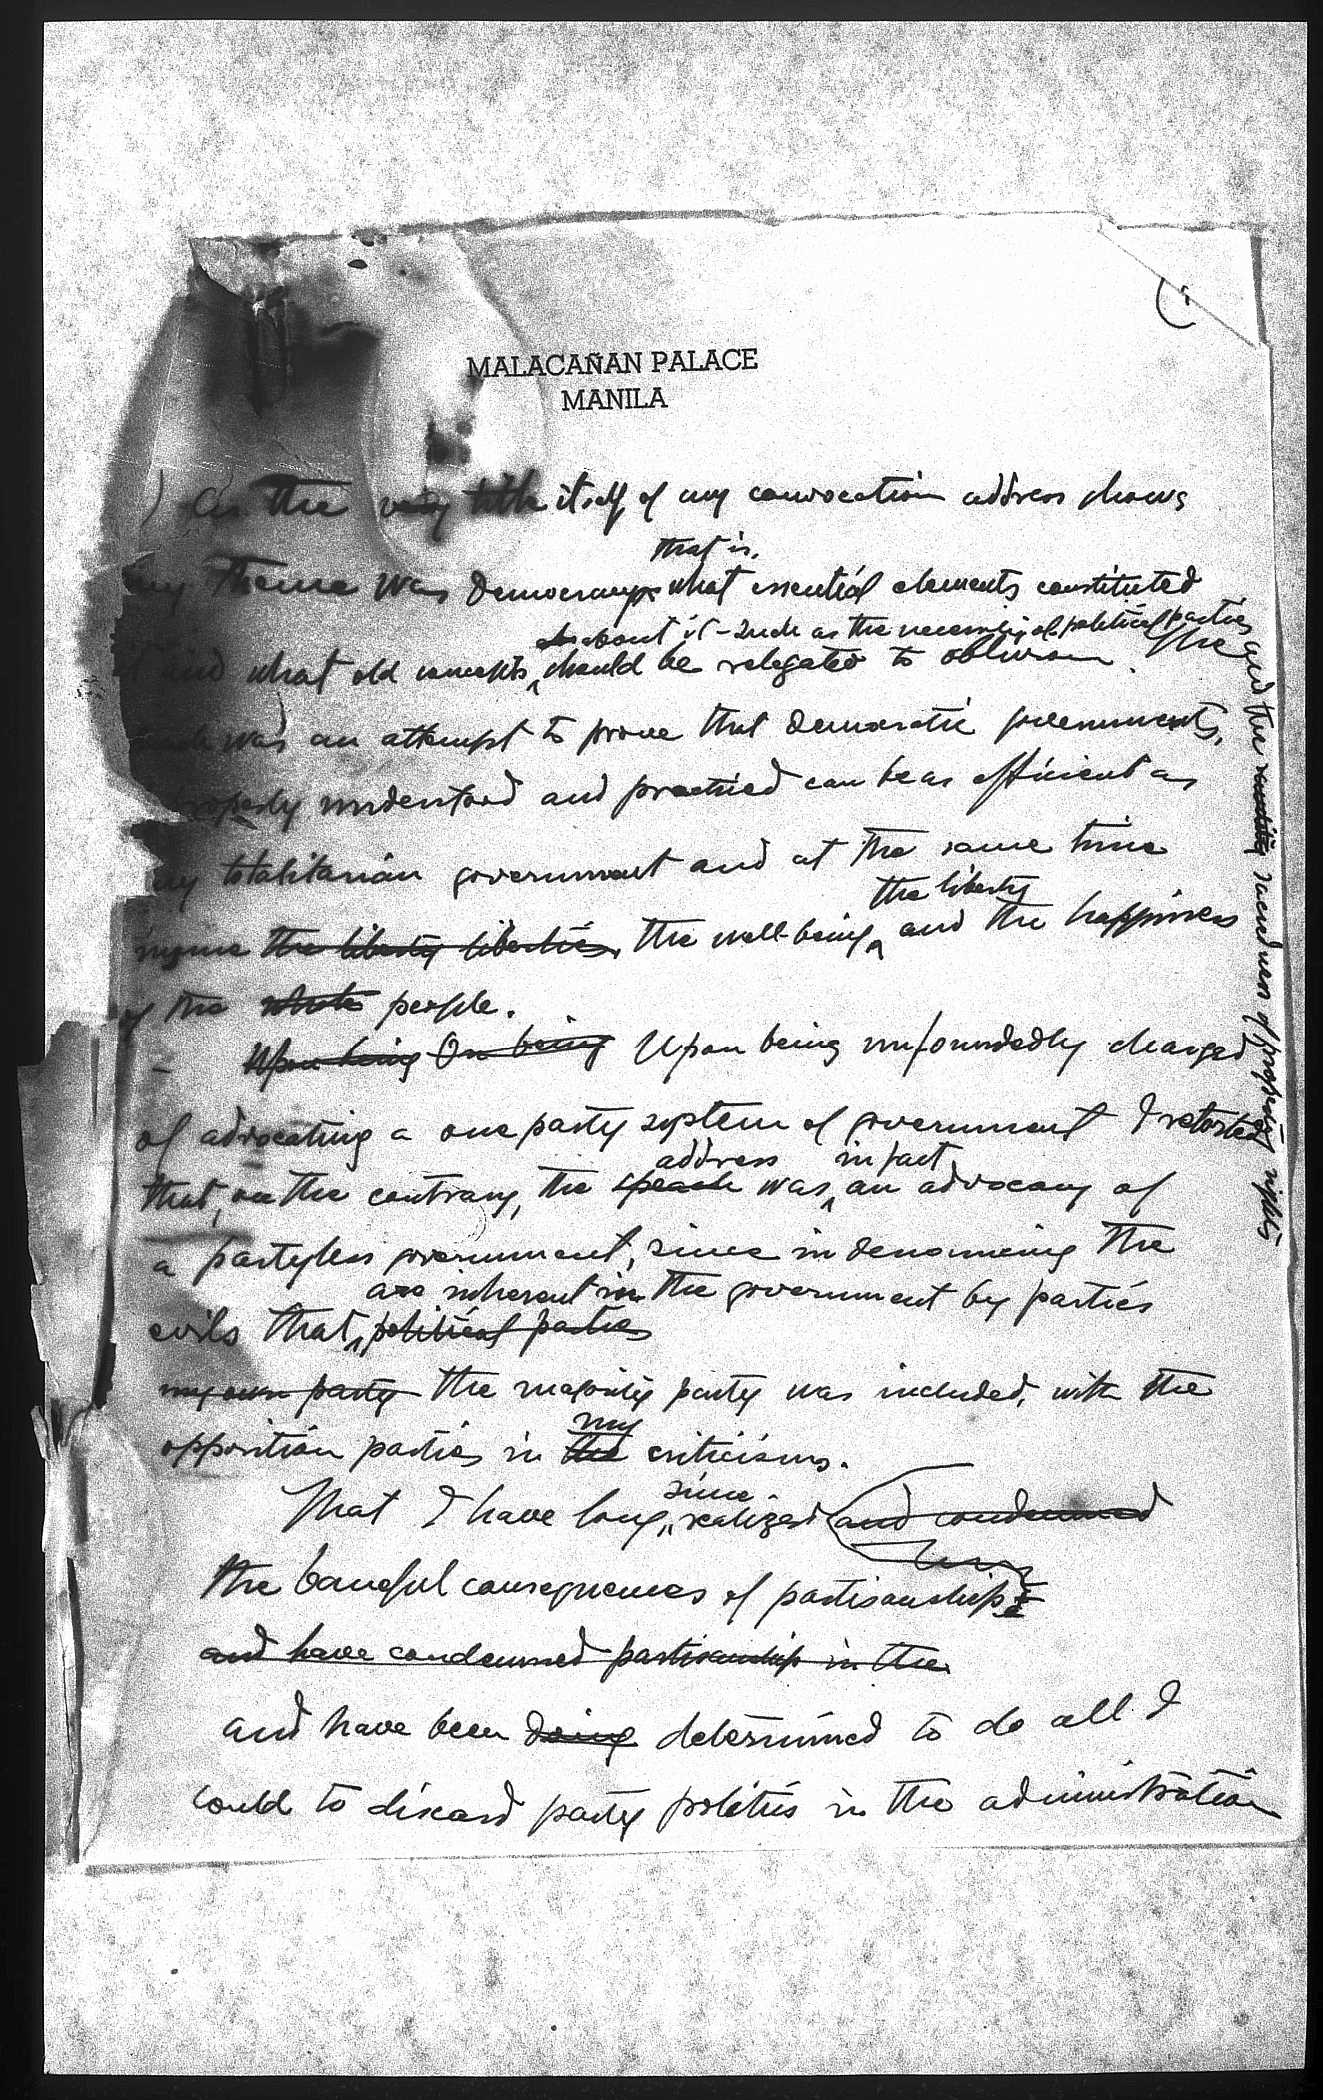 MALACAÑAN PALACE
MANILA
As the very title itself of my convocation address shows
that is,
my theme was Democracy what essential elements constituted
about it - such as the necessity of political parties and the sacredness of property rights
it and what old concepts, should be relegated to oblivion. The
was an attempt to prove that democratic governments,
properly understood and practiced can be as efficient as
any totalitarian government and at the same time
the liberty
insure the liberty liberties, the well-being, and the happiness
of the whole people.
Upon being On being Upon being unfoundedly charged
of advocating a one party system of government I retorted
address in fact
that, on the contrary, the speech was an advocacy of
a partyless government, since in denouncing the
are inherent in the government by parties
evils that political parties
my own party the majority party was included, with the
my
opposition parties in the criticisms.
since
That I have long realized and condemned
the baneful consequences of partisanship
and have condemned partisanship in the
and have been doing determined to do all I
could to discard party politics in the administration